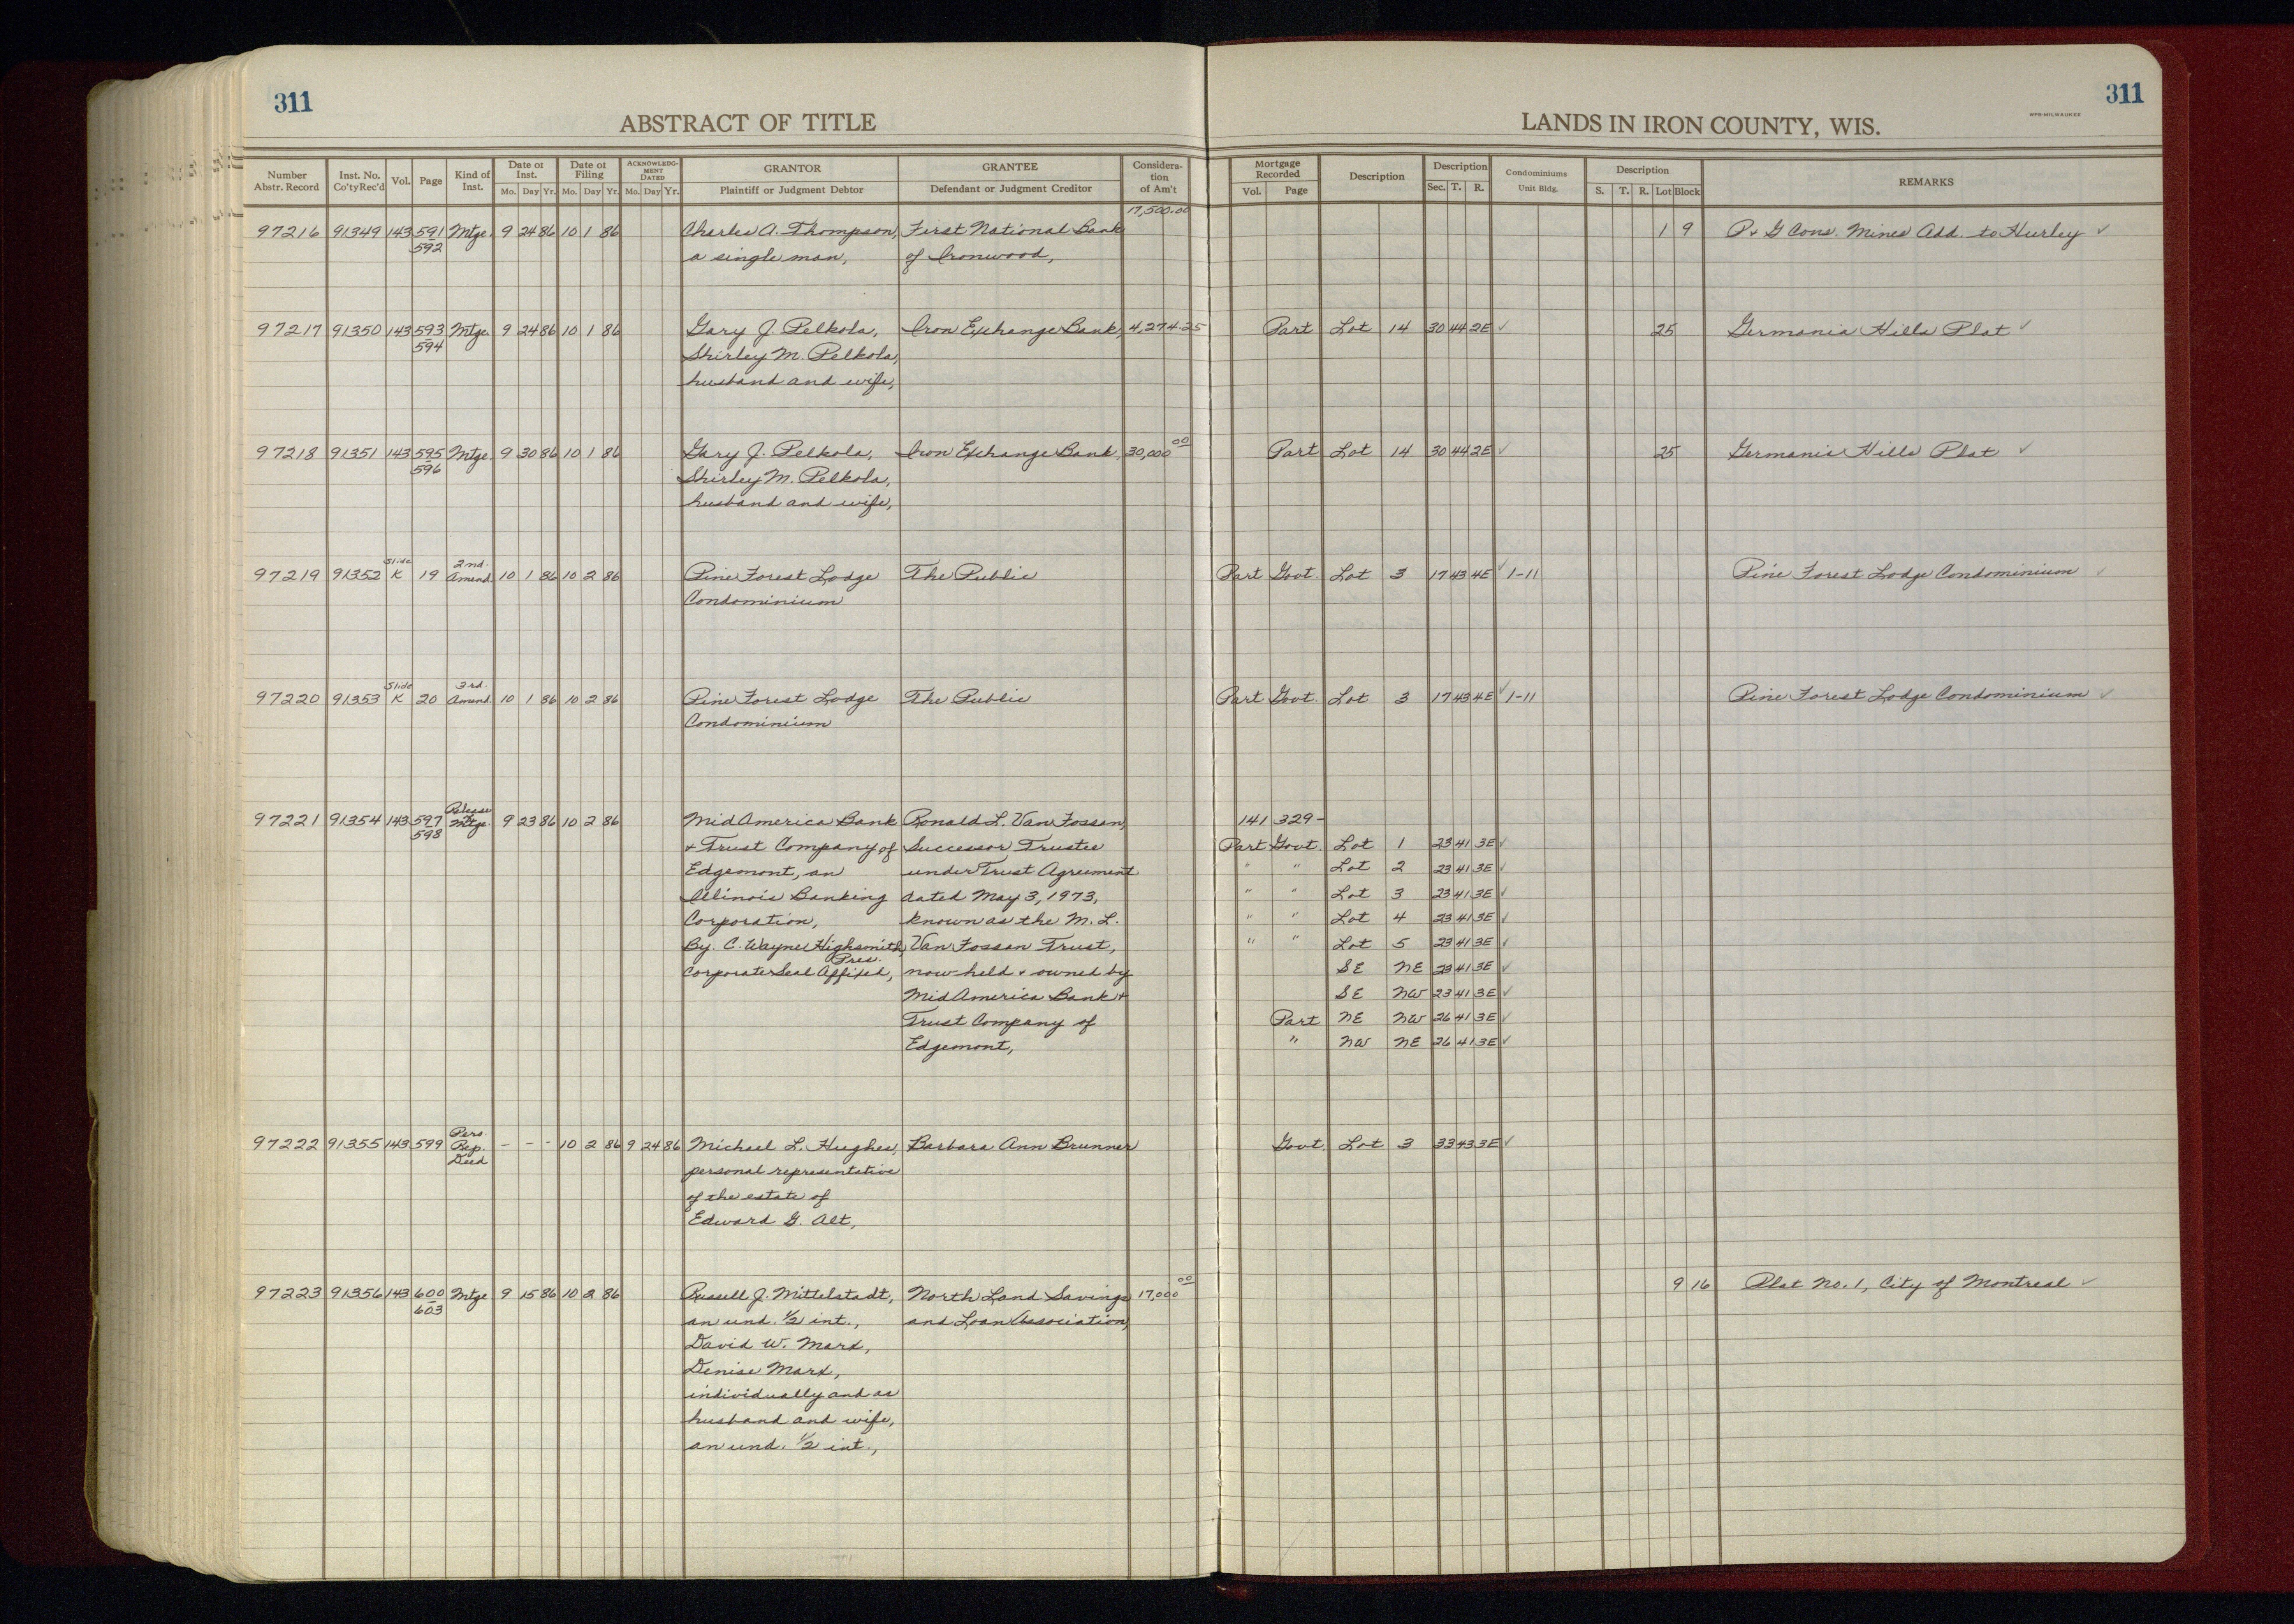 311
311
ABSTRACT OF TITLE
LANDS IN IRON COUNTY, WIS.
WPB-MILWAUKEE
Number Abstr. Record | Inst. No. Co'ty Rec'd | Vol. | Page | Kind of Inst. | Date of Inst. Mo. Day Yr. | Date of Filing Mo. Day Yr. | ACKNOWLEDGMENT DATED Mo. Day Yr. | GRANTOR Plaintiff or Judgment Debtor | GRANTEE Defendant or Judgment Creditor | Consideration of Am't | Mortgage Recorded Vol. Page | Description | Description Sec. T. R. | Condominiums Unit Bldg. | Description S. T. R. Lot Block | REMARKS
17,500.00
97216 91349 143 591 Mtge. 9 24 86 10 1 86 Charles A. Thompson, First National Bank 1 9 P & G Cons. Mines Add. to Hurley ✓
592 a single man, of Ironwood,
97217 91350 143 593 Mtge. 9 24 86 10 1 86 Gary J. Pelkola, Iron Exchange Bank, 4,274.25 Part Lot 14 30 44 2E ✓ 25 Germania Hills Plat ✓
594 Shirley M. Pelkola,
husband and wife,
97218 91351 143 595 Mtge. 9 30 86 10 1 86 Gary J. Pelkola, Iron Exchange Bank, 30,000 00 Part Lot 14 30 44 2E ✓ 25 Germania Hills Plat ✓
596 Shirley M. Pelkola,
husband and wife,
Slide 2nd.
97219 91352 K 19 Amend. 10 1 86 10 2 86 Pine Forest Lodge The Public Part Govt. Lot 3 17 43 4E ✓ 1-11 Pine Forest Lodge Condominium ✓
Condominium
Slide 3rd.
97220 91353 K 20 Amend. 10 1 86 10 2 86 Pine Forest Lodge The Public Part Govt. Lot 3 17 43 4E ✓ 1-11 Pine Forest Lodge Condominium ✓
Condominium
Release
97221 91354 143 597 Mtge. 9 23 86 10 2 86 MidAmerica Bank Ronald L. Van Fossan, 141 329-
598 & Trust Company of Successor Trustee Part Govt. Lot 1 23 41 3E ✓
Edgemont, an under Trust Agreement " " Lot 2 23 41 3E ✓
Illinois Banking dated May 3, 1973, " " Lot 3 23 41 3E ✓
Corporation, known as the M. L. " " Lot 4 23 41 3E ✓
By: C. Wayne Highsmith, Van Fossan Trust, " " Lot 5 23 41 3E ✓
Pres.
Corporate Seal Affixed, now held & owned by SE NE 23 41 3E ✓
MidAmerica Bank & SE NW 23 41 3E ✓
Trust Company of Part NE NW 26 41 3E ✓
Edgemont, " NW NE 26 41 3E ✓
Pers.
97222 91355 143 599 Rep. - - - 10 2 86 9 24 86 Michael L. Hughes, Barbara Ann Brunner Govt. Lot 3 33 43 3E ✓
Deed personal representative
of the estate of
Edward G. Alt,
97223 91356 143 600 Mtge 9 15 86 10 2 86 Russell J. Mittelstadt, North Land Savings 17,000 00 9 16 Plat No. 1, City of Montreal ✓
603 an und. 1/2 int., and Loan Association,
David W. Marx,
Denise Marx,
individually and as
husband and wife,
an und. 1/2 int.,